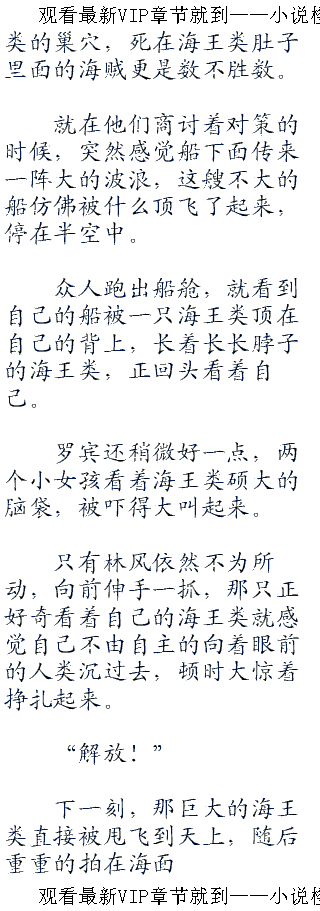 观看最新VIP章节就到——小说
类的巢穴，死在海王类肚子
里面的海贼更是数不胜数。
就在他们商讨着对策的
时候，突然感觉船下面传来
一阵大的波浪，这艘不大的
船仿佛被什么顶飞了起来，
停在半空中。
众人跑出船舱，就看到
自己的船被一只海王类顶在
自己的背上，长着长长脖子
的海王类，正回头看着自
己。
罗宾还稍微好一点，两
个小女孩看着海王类硕大的
脑袋，被吓得大叫起来。
只有林风依然不为所
动，向前伸手一抓，那只正
好奇看着自己的海王类就感
觉自己不由自主的向着眼前
的人类沉过去，顿时大惊着
挣扎起来。
“解放！”
下一刻，那巨大的海王
类直接被甩飞到天上，随后
重重的拍在海面
观看最新VIP章节就到——小说